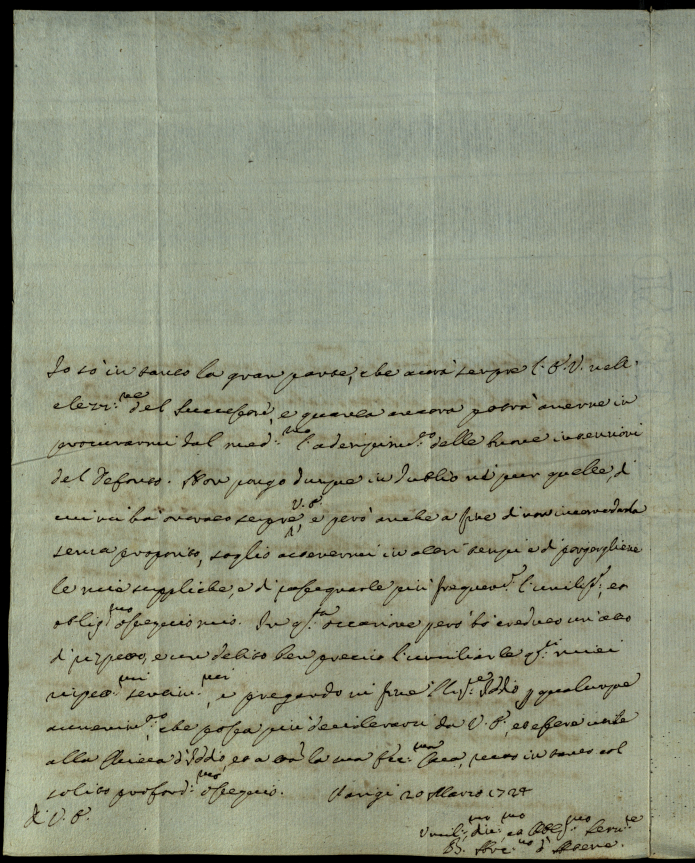 Io sò in tanto la gran parte, che aurà sempre l. P. V. nell.
elezz.ne del Successore, e quanta ancora potrà auerne in
procurarmi dal med.mo l'adempim.to delle buone intenzioni
del Defonto. Non pongo dunque in dubbio nè pur quelle, di
cui mi hà onorato sempre V. P., e però anche a fine di non incomodarla
senza proposito, soglio astenermi in altri tempi e di porgergliene
le mie suppliche, e di rassegnarle più frequen.te l'umiliss.o, et
oblig.mo ossequio mio. In q.ta occasione però hò creduto un atto
di rispetto, e un debito ben preciso l'umiliarle q.ti miei
rispett.mi sentim.ti, e pregando in fine Iddio p qualunque
auuenim.to, che possa più desiderarsi da V. P., et essere utile
alla Chiesa d'Iddio, et a la sua Casa, resto in tanto col
solito profond.mo ossequio. Parigi 20 Marzo 1724
di V. P.
Umilis.mo diu.mo et Obblig.mo Seru.re